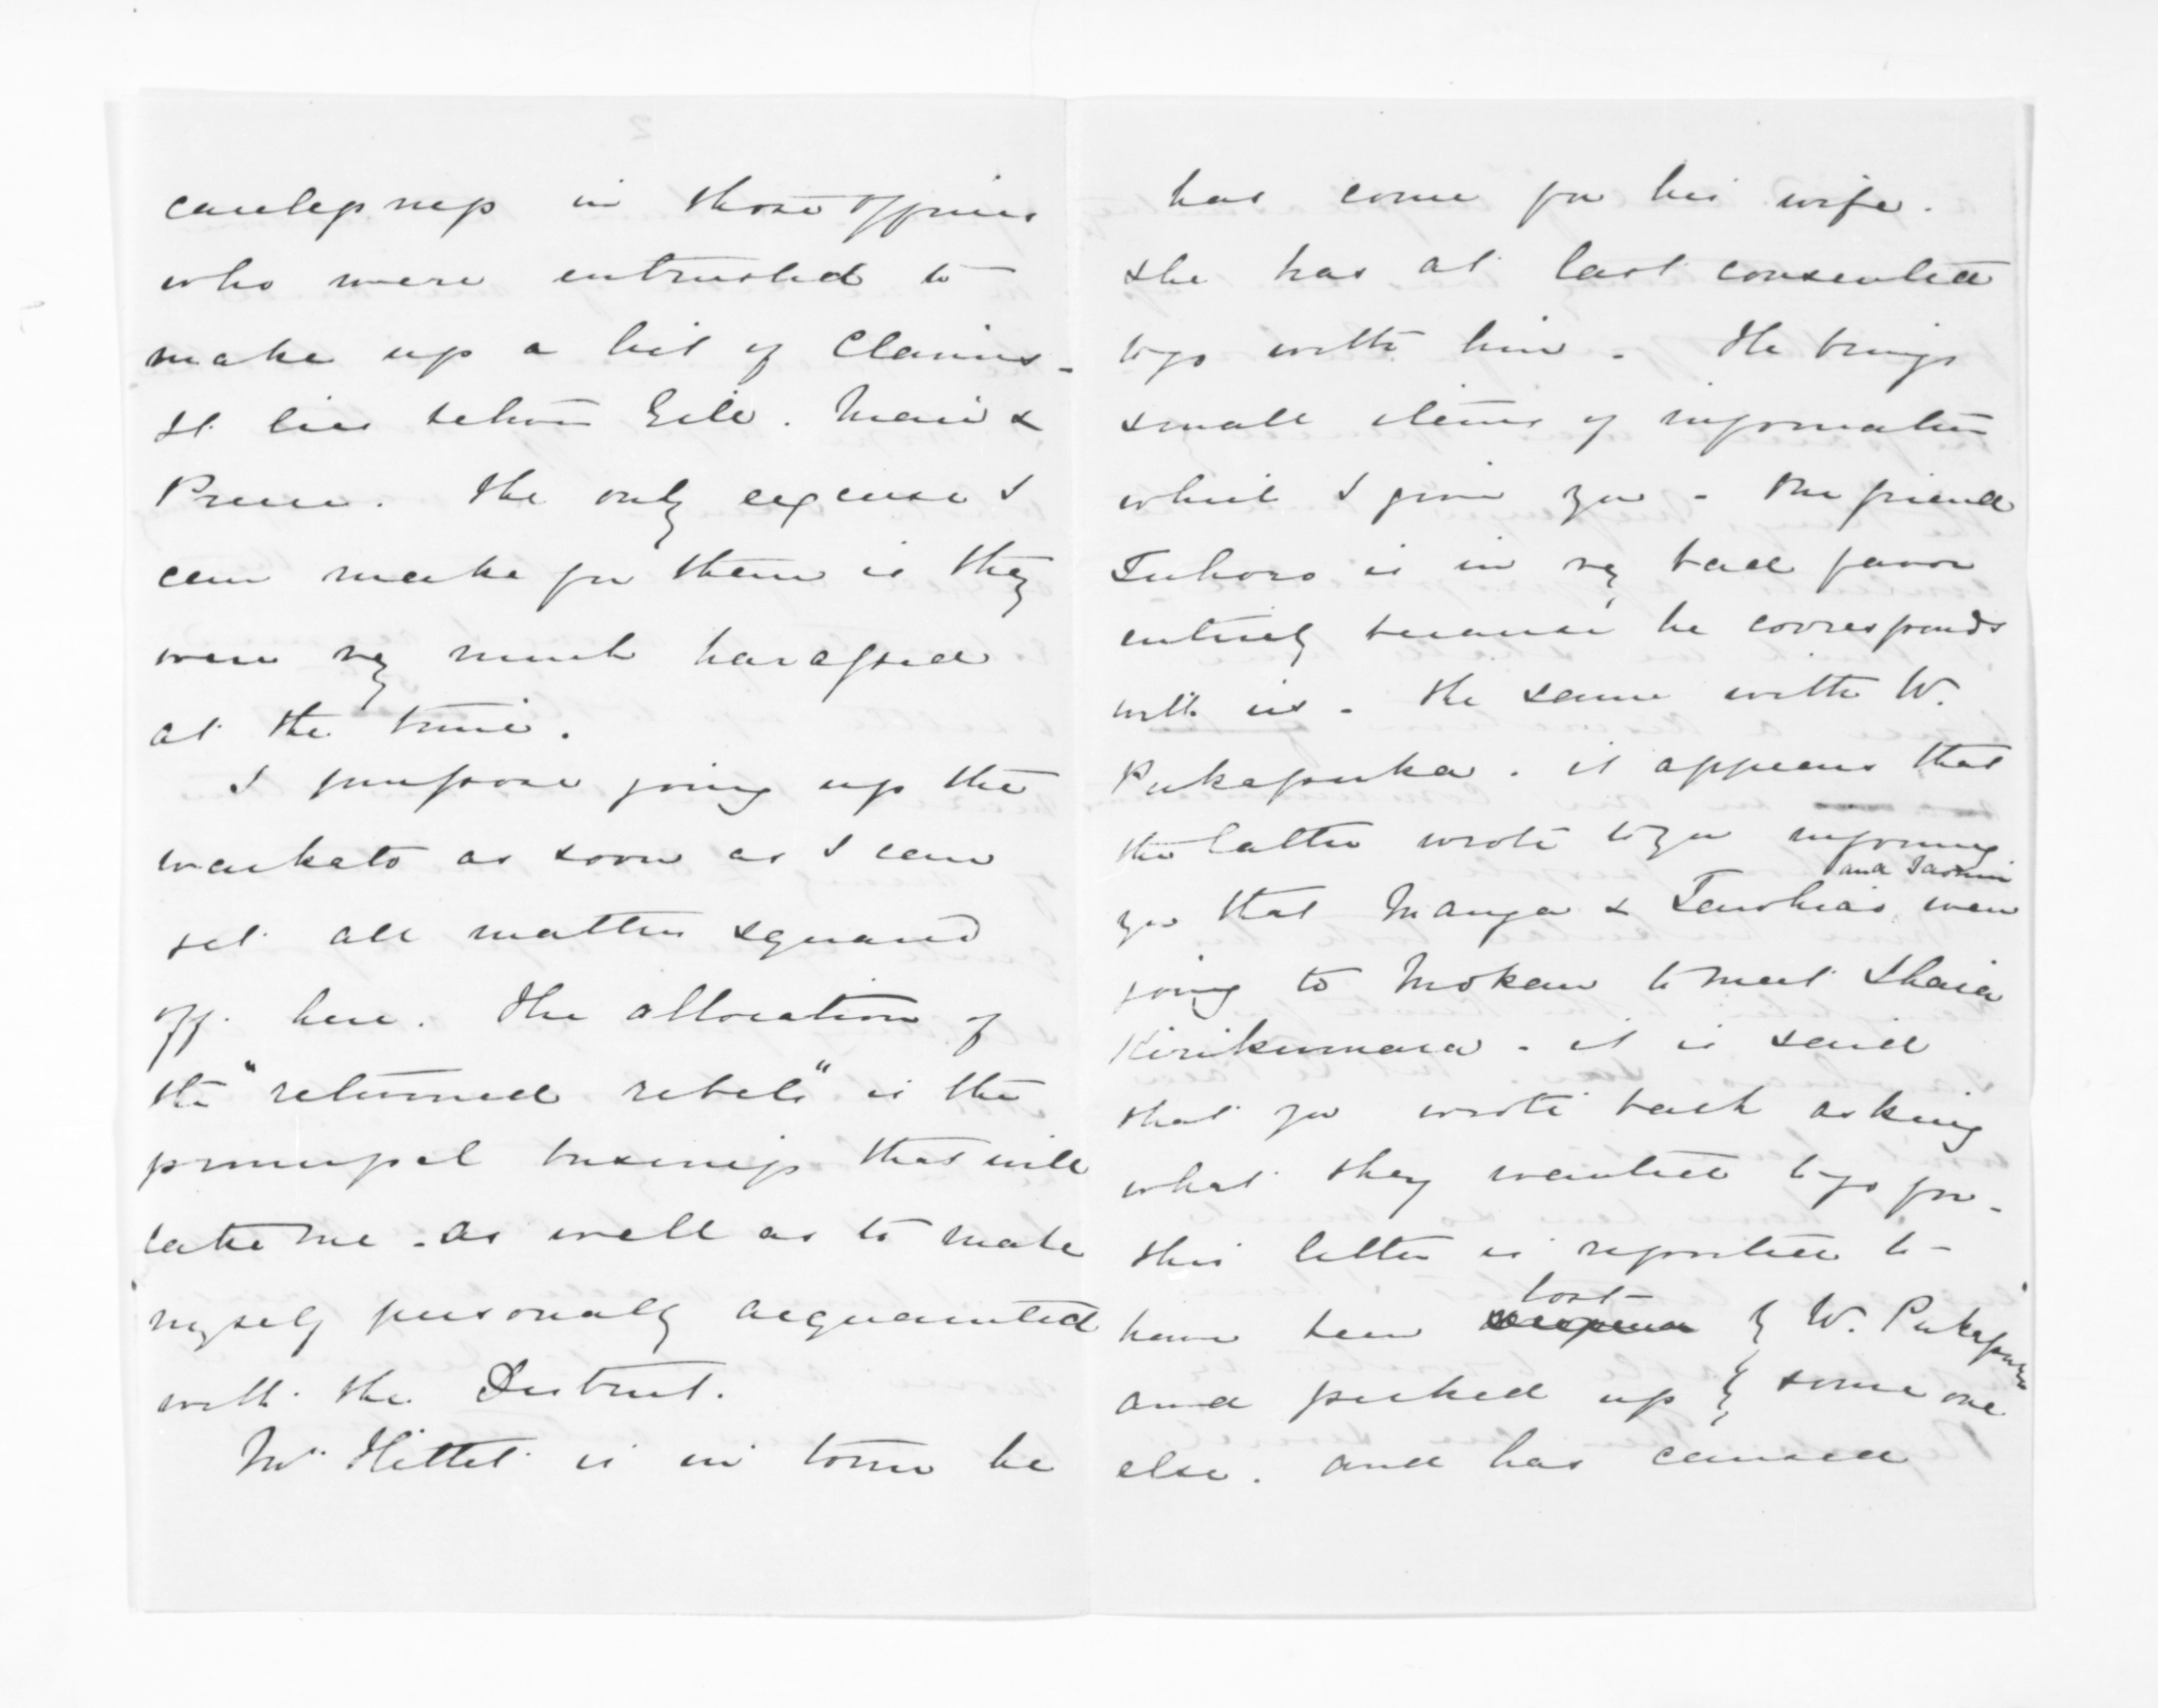 carelessness in those officers
who were entrusted to
make up a list of Claims -
It lies between Gill. Mair &
Preece. The only excuse I
can make for them is they
were very much harassed
at the time.
I purpose going up the
Waikato as soon as I can
set all matters squared
off here. The allocation of
the "returned rebels" is the
principal business that will
take me - as well as to make
myself personally acquainted
with the District.
Mr Hettet is in town he
has come for his wife.
She has at last consented
to go with him - He brings
small items of information
which I give you - Our friend
Tuhoro is in very bad favor
entirely because he corresponds
with us - The same with W.
Pukapuka. it appears that
the latter wrote to you informing
you that Manga & Tawhiao and were
going to Mokau to meet Ihaia
Kirikumara - it is said
that you wrote back asking
what they wanted to go for -
this letter is reported to -
have been lost by W. Pukapuka
and picked up by some one
else. and has caused